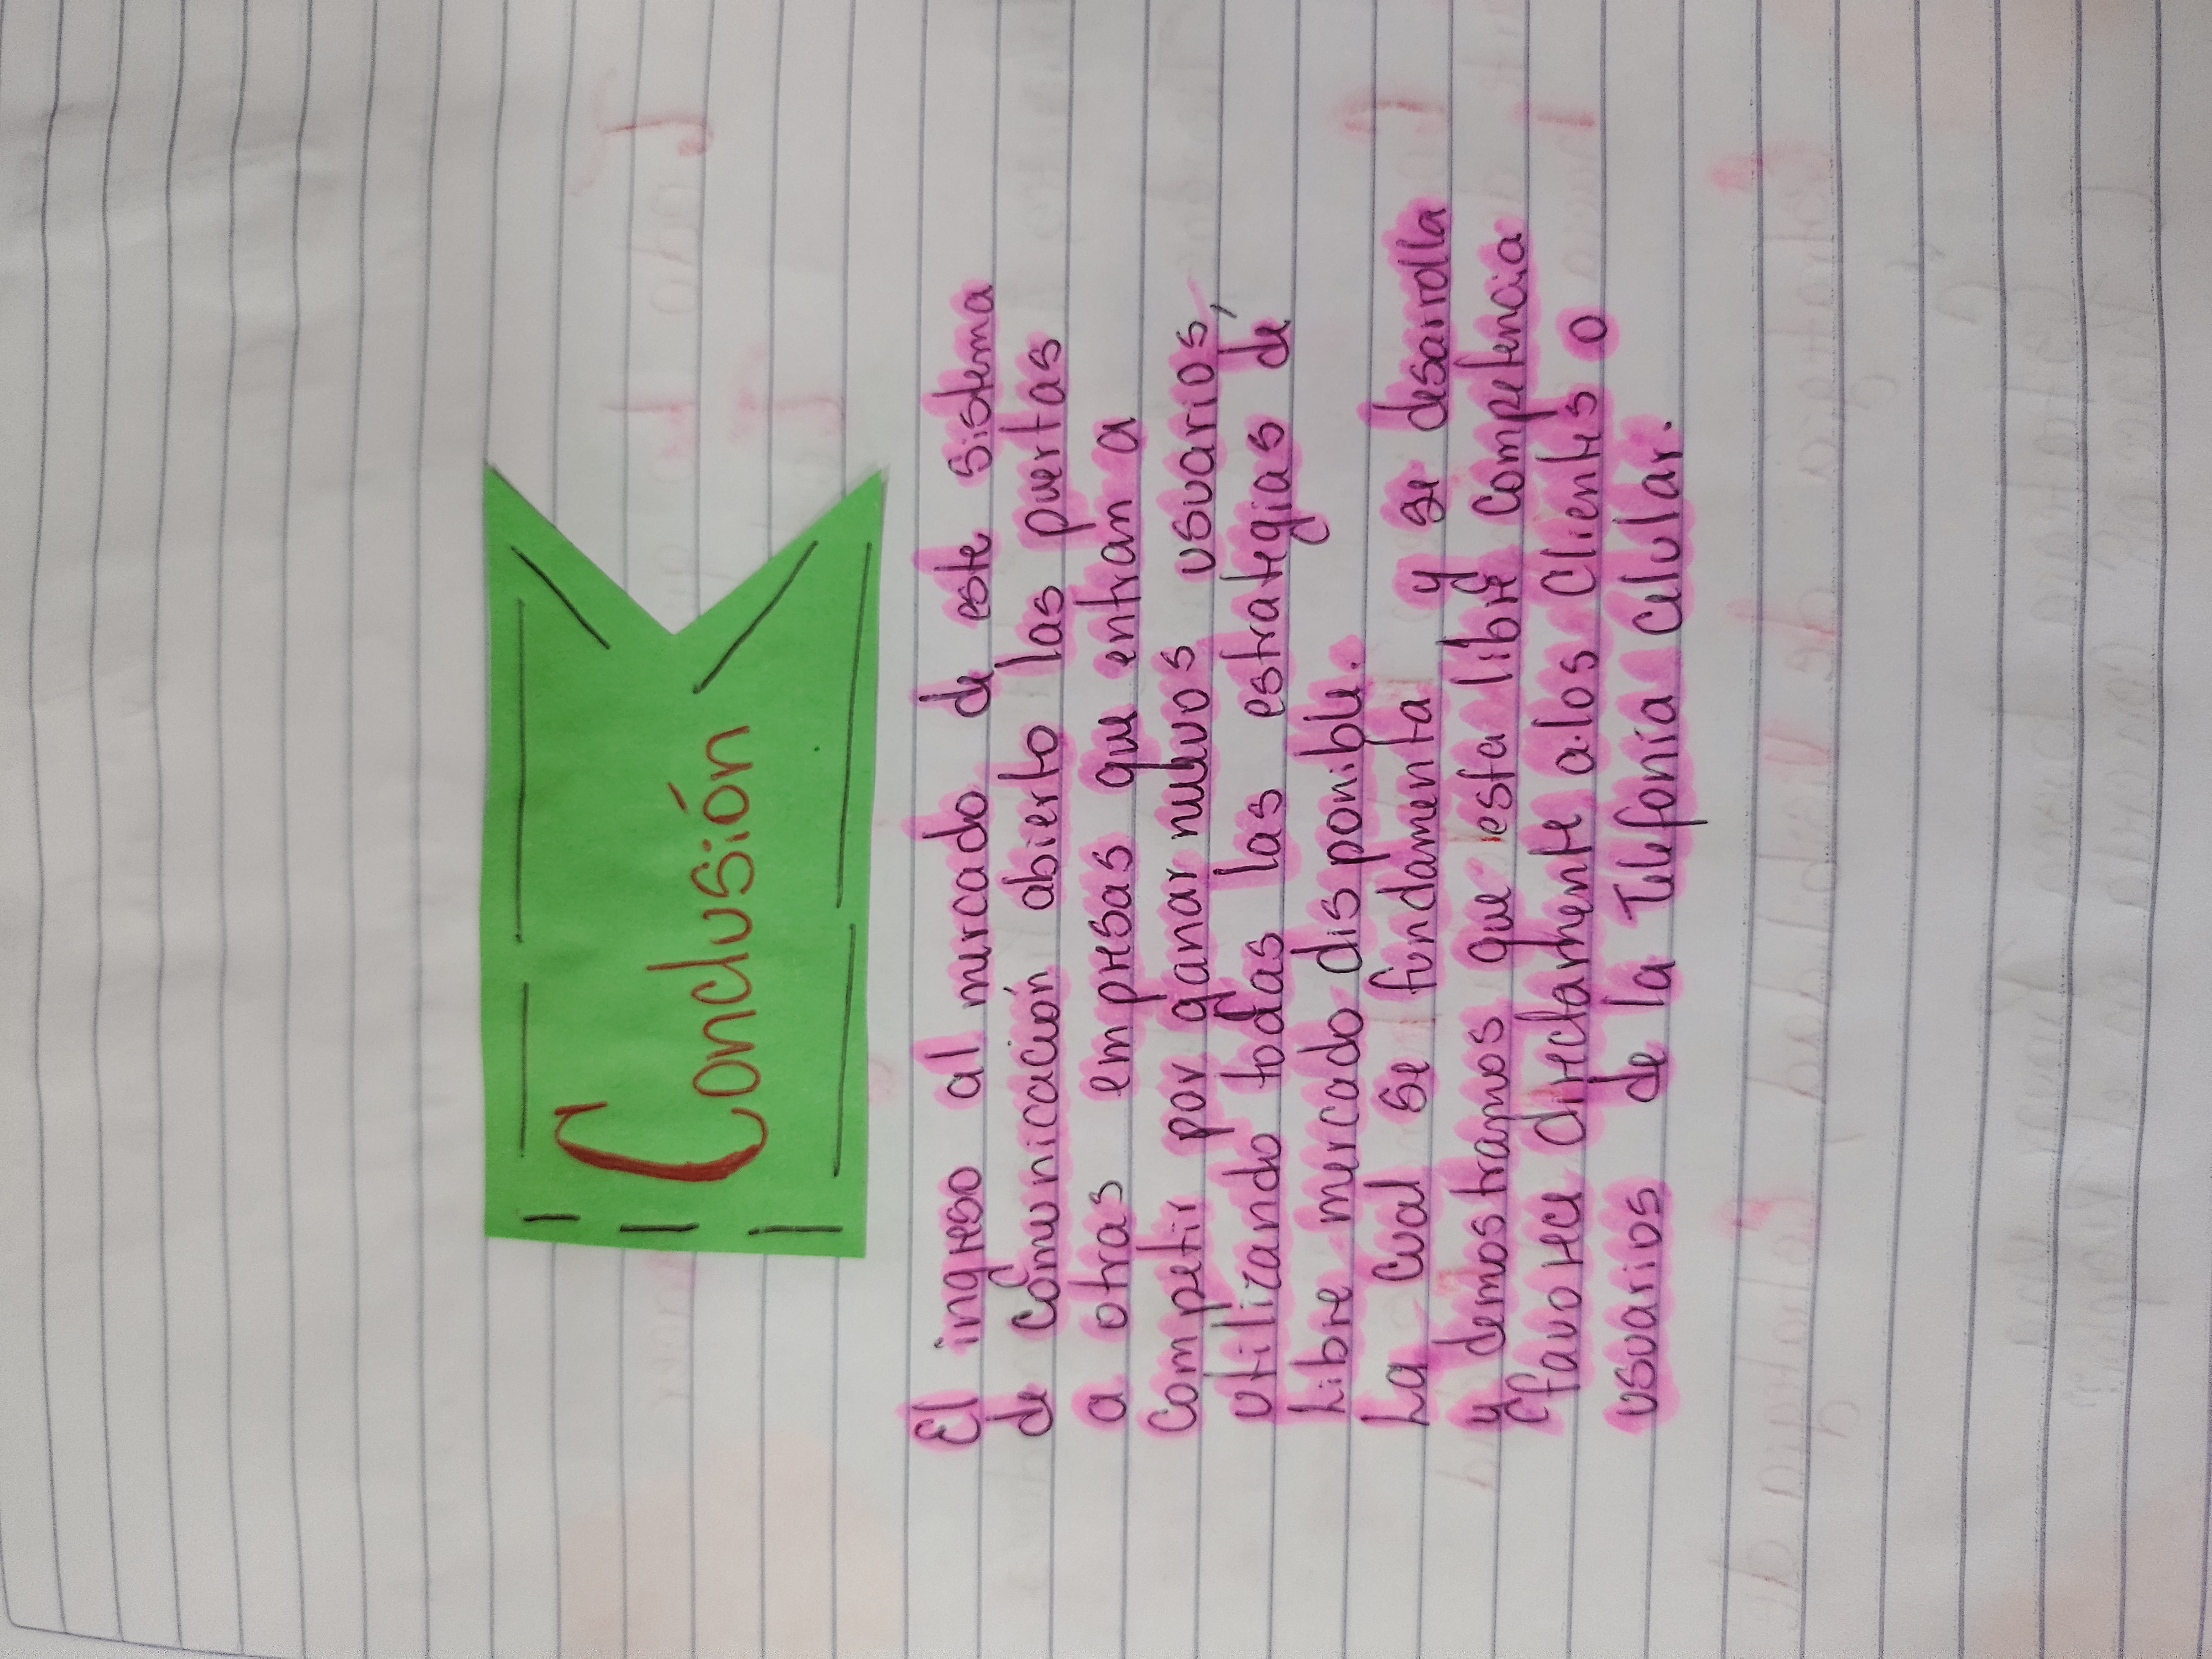 Conclusión
El ingreso al mercado de este sistema
de comunicación abierto las puertas
a otras empresas que entran a
competir por ganar nuevos usuarios,
utilizando todas las estrategias de
Libre mercado disponible.
La cual se fundamenta y se desarrolla
y demostramos que esta libre competencia
favorece directamente a los clientes o
usuarios de la Telefonía celular.